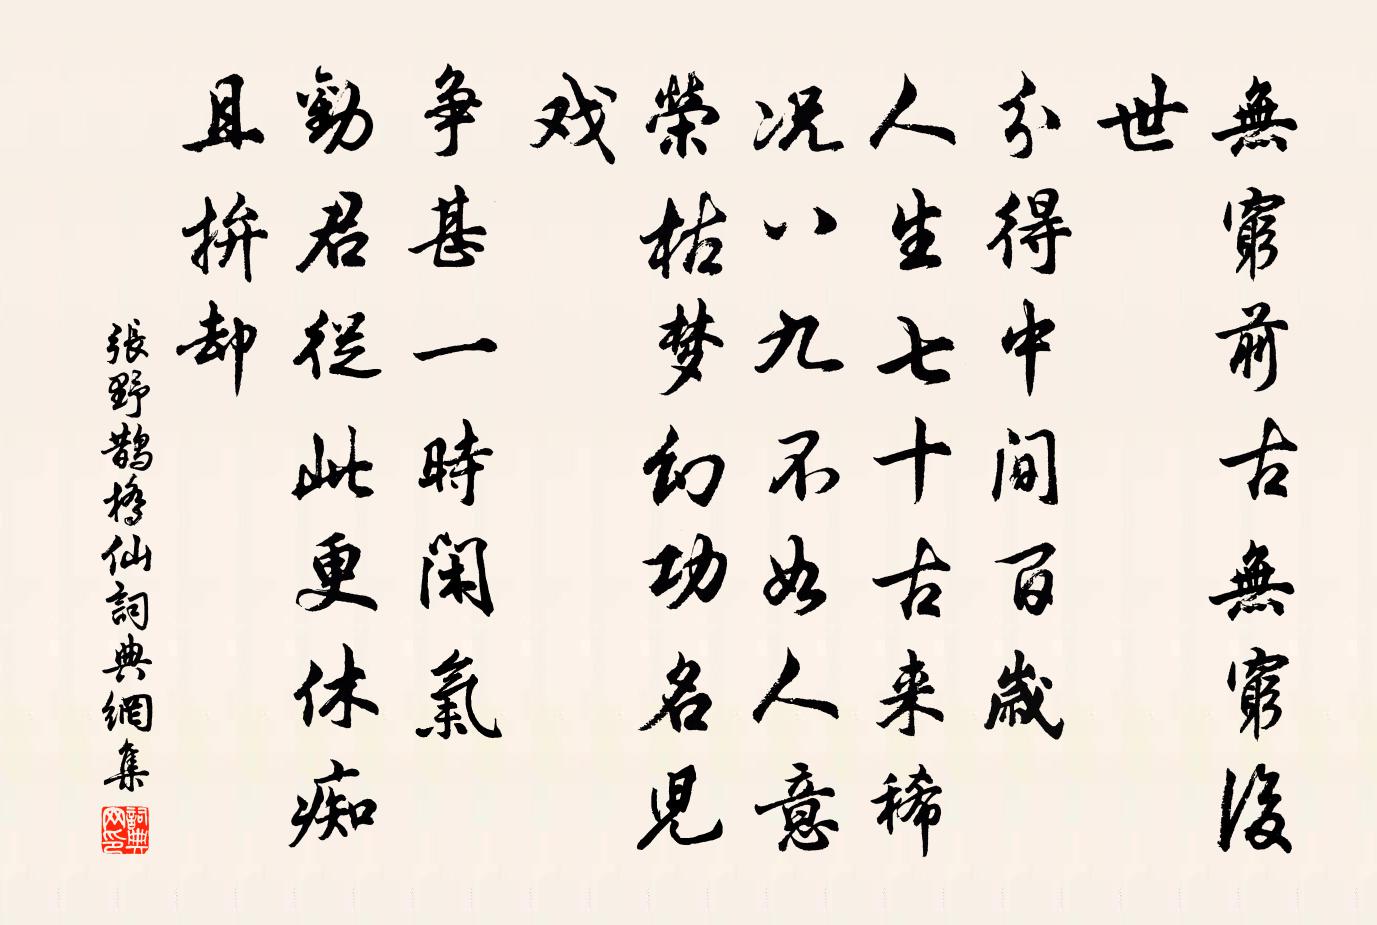 無窮前古無窮後
世
分得中間百歲
人生七十古来稀
况八九不如人意
榮枯梦幻功名児
戏
争甚一時閑氣
勸君從此更休痴
且拚却
張野鵲橋仙詞典網集
詞典
网印